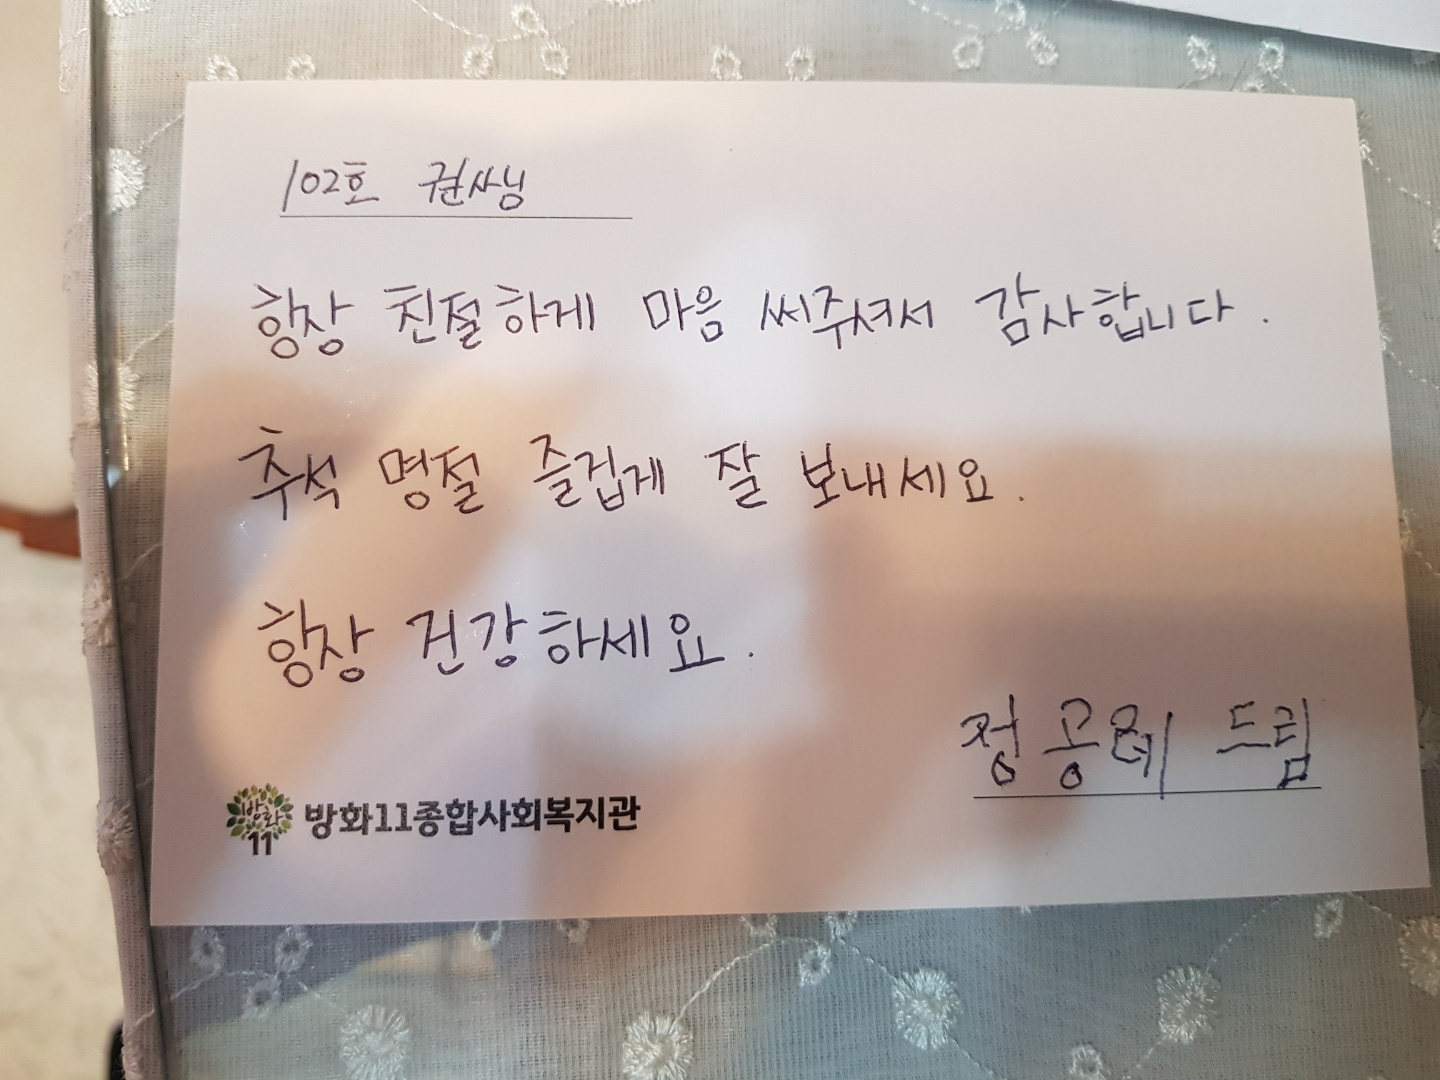 102호 권사님
항상 친절하게 마음 써주셔서 감사합니다.
추석 명절 즐겁게 잘 보내세요.
항상 건강하세요.
정공례 드림
방화 11 방화11종합사회복지관